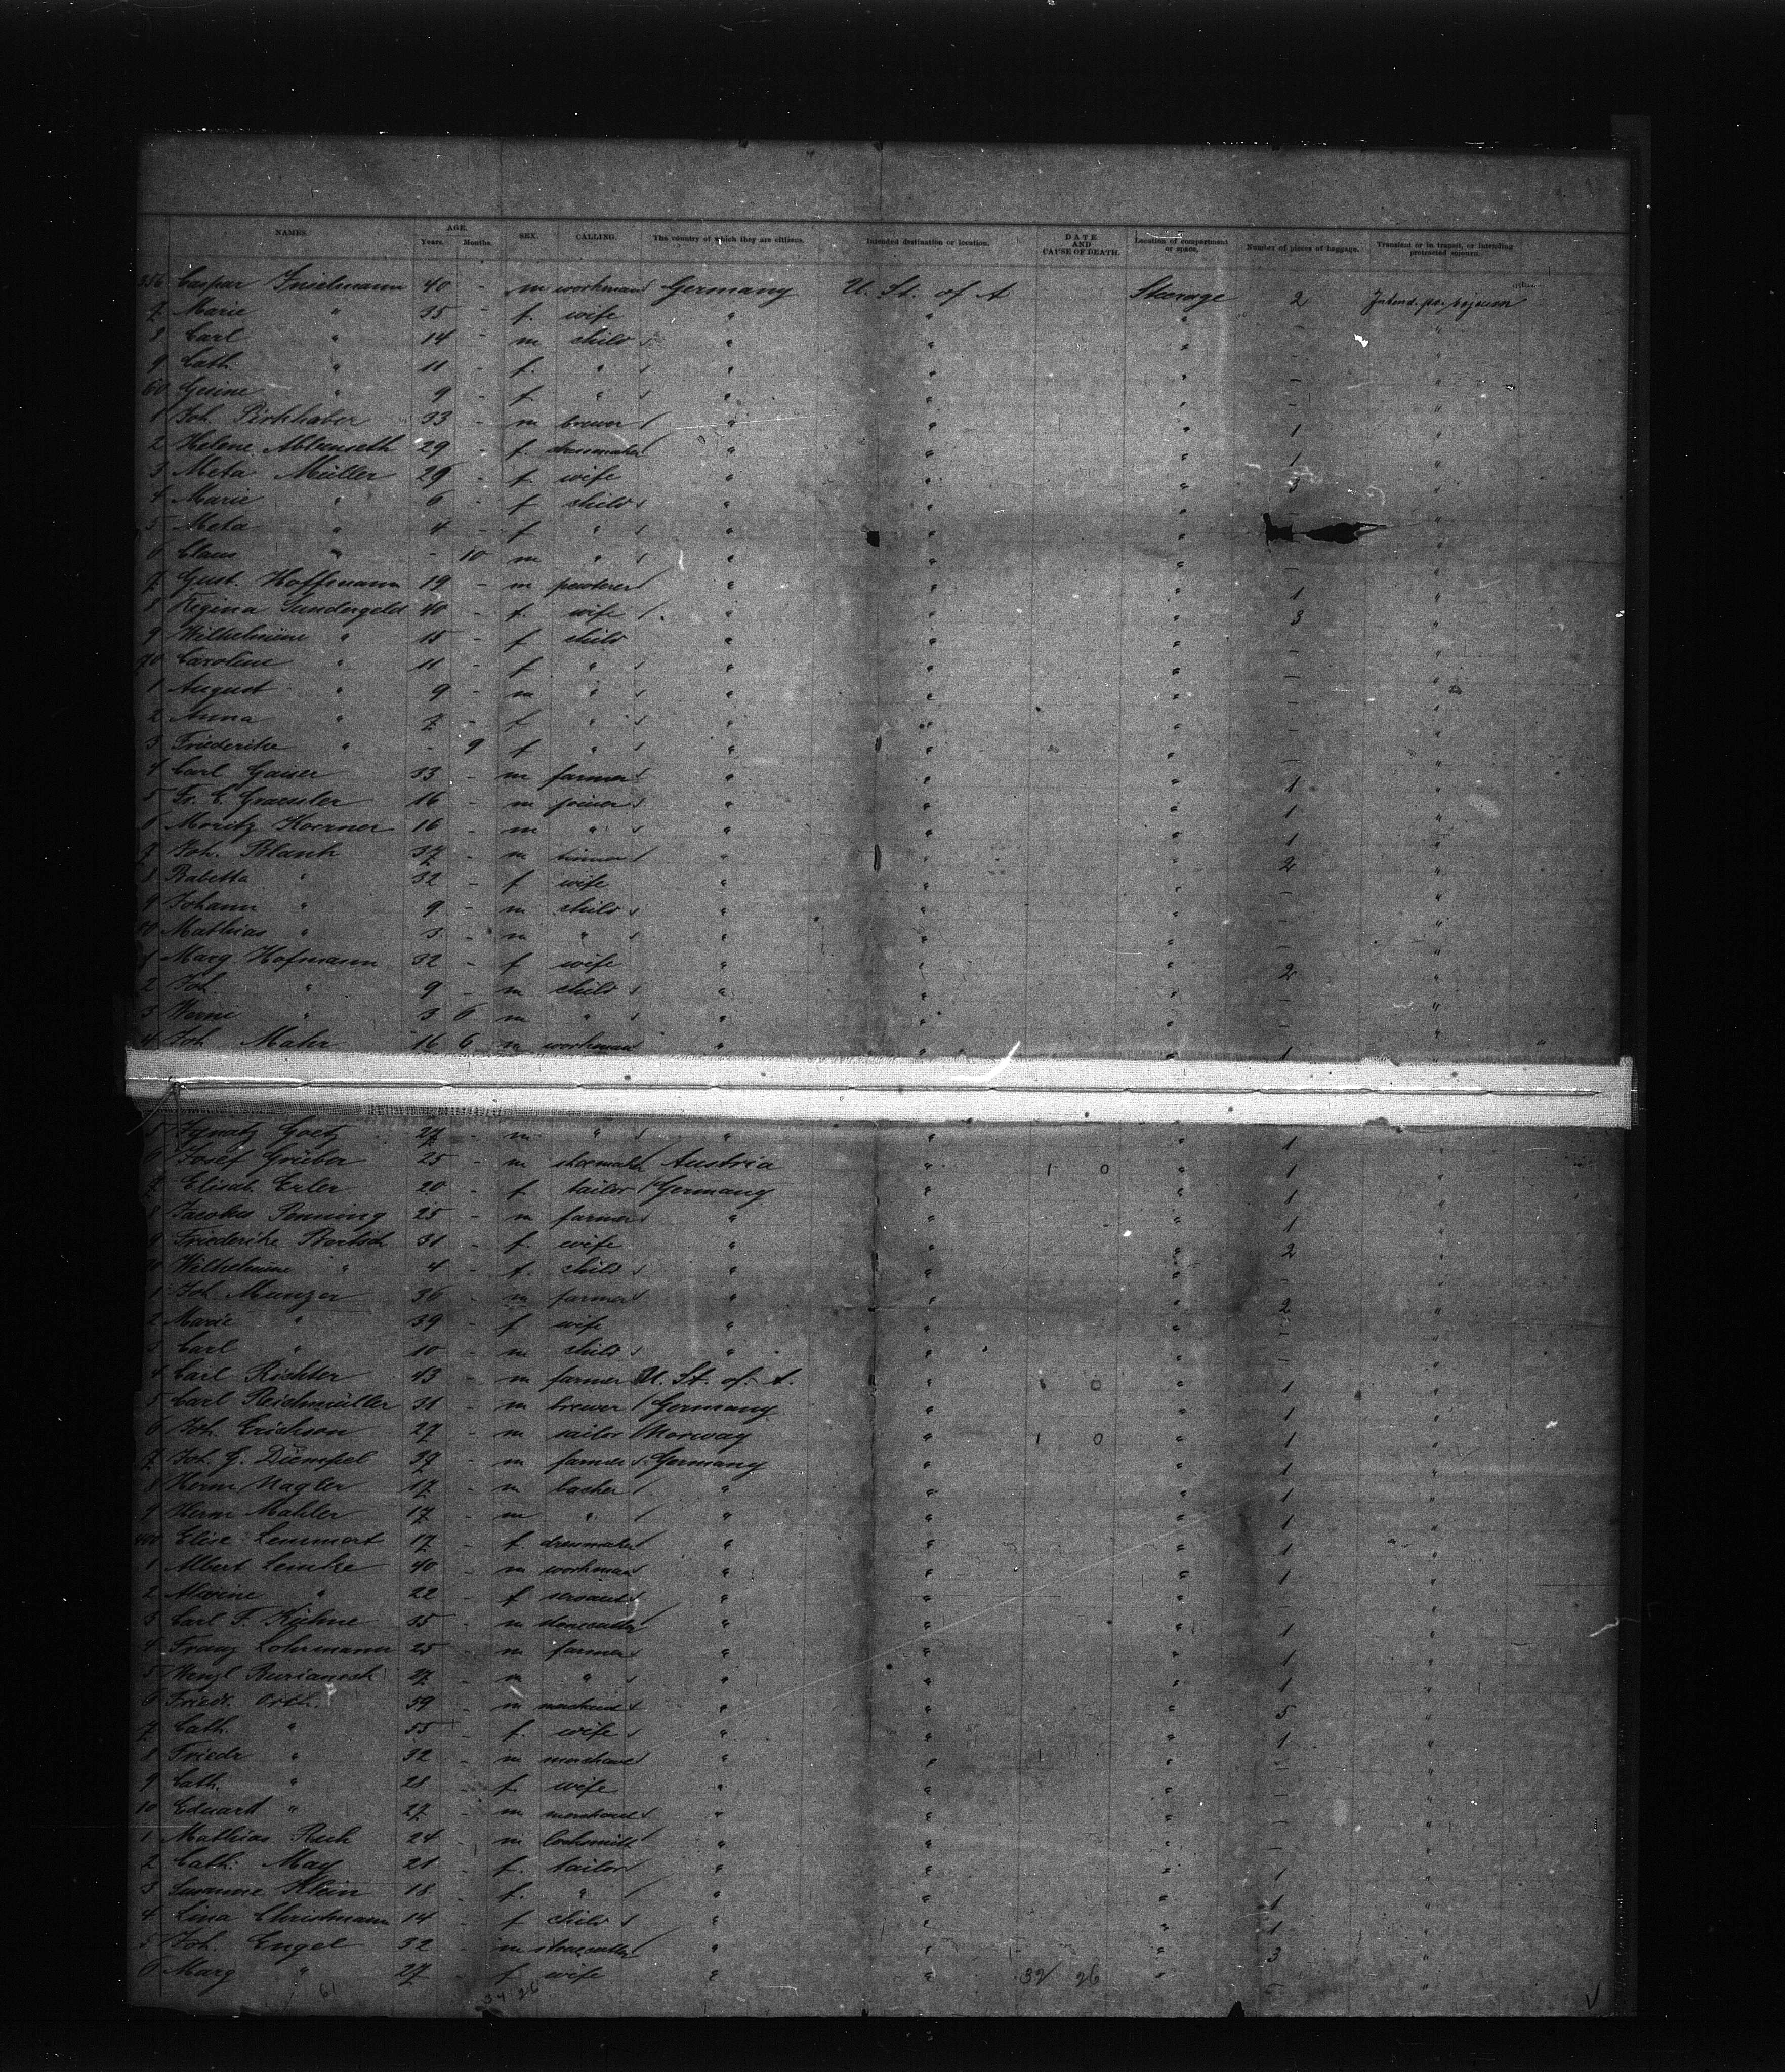 NAMES. AGE. Years. Months. SEX. CALLING. The country of which they are citizens. Intended destination or location. DATE AND CAUSE OF DEATH. Location of compartment or space. Number of pieces of luggage. Transient or in transit, or intending protracted sojourn.
356 Caspar 40 - m workman Germany U. St. of A Steerage 2 Intend. pr. sojourn
7 Marie " 35 - f. wife " " " - "
8 Carl " 14 - m child " " " - "
9 Cath. " 11 - f. " " " " - "
60 Gesine " 9 - f " " " " - "
1 Joh. 33 - m brewer " " " 1 "
2 Helene 29 - f. dressmaker " " " 1 "
3 Meta Müller 29 - f. wife " " " 3 "
4 Marie " 6 - f child " " " - "
5 Meta " 4 - f " " " " "
6 Claus " - 10 m " " " " - "
7 Gust. Hoffmann 19 - m " " " 1 "
8 Regina Sundergeld 40 - f. wife " " " 3 "
9 Wilhelmine " 15 - f child " " " - "
70 Caroline " 11 - f " " " " - "
1 August " 9 - m " " " " - "
2 Anna " 7 - f " " " " - "
3 Friederike " - 9 f " " " " - "
4 Carl Gaiser 33 - m farmer " " " 1 "
5 Fr. E. Graessler 16 - m joiner " " " 1 "
6 Moritz Hoerner 16 - m " " " " 1 "
7 Joh. Blank 37 - m " " " 2 "
8 Babetta " 32 - f wife " " " - "
9 Johann " 9 - m child " " " - "
80 Mathias " 3 - m " " " " - "
1 Marg. Hofmann 32 - f wife " " " 2 "
2 Joh. " 9 - m child " " " - "
3 " 3 6 m " " " " - "
4 Joh Mahr 16 6 m workman " " " 1 "
5 Ignatz Goetz 27 - m " " " " 1 "
6 Josef Grüber 25 - m shoemaker Austria " 1 0 " 1 "
7 Elisab. Erler 20 - f. tailor Germany " " 1 "
8 Jacobus Penning 25 - m farmer " " " 1 "
9 Friederike Bartsch 31 - f. wife " " " 2 "
Wilhelmine " 4 - f. child " " " - "
1 Joh Munzer 36 - m farmer " " " 2 "
2 Marie " 39 - f wife " " " - "
3 Carl " 10 - m child " " " - "
4 Carl Richter 43 - m farmer U. St. of. A. " 1 0 " 1 "
5 Carl Reichmüller 31 - m brewer Germany " " 1 "
6 Joh. Erickson 27 - m sailor Norway " 1 0 " 1 "
7 Joh. G. Dümpel 39 - m farmer Germany " " 1 "
8 Herm. Nagler 17 - m " " " 1 "
9 Herm Mahler 17 - m " " " " 1 "
400 Elise Lemmert 17 - f. dressmaker " " " 1 "
1 Albert Lemke 40 - m workman " " " 1 "
2 Alwine " 22 - f servant " " " - "
3 Carl F. Kühne 35 - m stonecutter " " " 1 "
4 Franz Lohrmann 25 - m farmer " " " 1 "
5 Wenzl 27 - m " " " " 1 "
6 Friedr. Orth. 59 - m merchant " " " 5 "
7 Cath. " 55 - f. wife " " " 1 "
8 Friedr " 32 - m merchant " " " - "
9 Cath. " 28 - f wife " " " - "
10 Eduard " 27 - m merchant " " " - "
1 Mathias 24 - m locksmith " " " - "
2 Cath. May 21 - f. tailor " " " 1 "
3 Susanne Klein 18 - f. " " " " 1 "
4 Lina Christmann 14 - f child " " " 1 "
5 Joh. Engel 32 - m stonecutter " " " 3 "
6 Marg " 27 - f wife " " 32 26 " - "
61 34 26